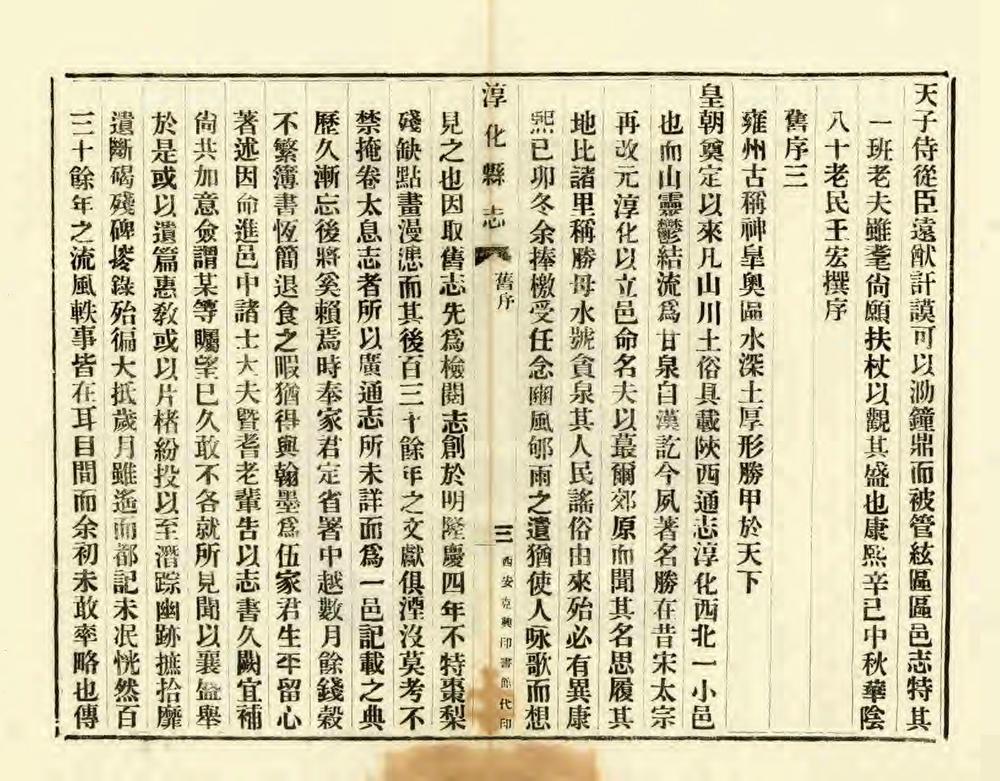 天子侍從臣遠猷訏謨可以泐鐘鼎而被管絃區區邑志特其
一班老夫雖耄尙願扶杖以觀其盛也康熙辛巳中秋華陰
八十老民王宏撰序
舊序三
雍州古稱神皐奧區水深土厚形勝甲於天下
皇朝奠定以來凡山川土俗具載陝西通志淳化西北一小邑
也而山靈鬱結流爲甘泉自漢訖今夙著名勝在昔宋太宗
再改元淳化以立邑命名夫以蕞爾郊原而聞其名思履其
地比諸里稱勝母水號貪泉其人民謠俗由來殆必有異康
熙已卯冬余捧檄受任念豳風郇雨之遺猶使人咏歌而想
淳化縣志
舊序
三
西安克興印書館代印
見之也因取舊志先爲檢閱志創於明隆慶四年不特棗梨
殘缺點畫漫漶而其後百三十餘年之文獻俱湮沒莫考不
禁掩卷太息志者所以廣通志所未詳而爲一邑記載之典
歷久漸忘後將奚賴焉時奉家君定省署中越數月餘錢穀
不繁簿書恆簡退食之暇猶得與翰墨爲伍家君生平留心
著述因命進邑中諸士大夫暨耆老輩告以志書久闕宜補
尙共加意僉謂某等矚望已久敢不各就所見聞以襄盛舉
於是或以遺篇惠敎或以片楮紛投以至潛踪幽跡摭拾靡
遺斷碣殘碑搽錄殆徧大抵歲月雖遙而都記未泯恍然百
三十餘年之流風軼事皆在耳目間而余初未敢率略也傳